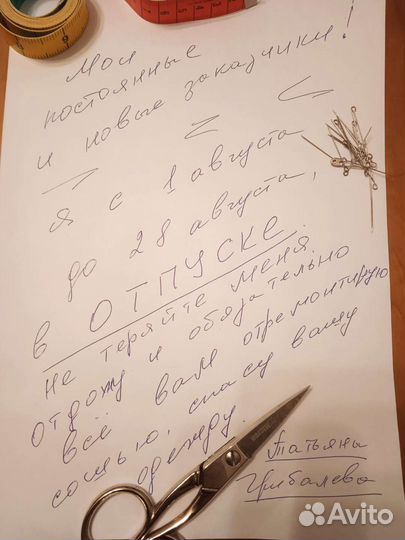 Мои
постоянные
и новые заказчики!
я с 1 августа
до 28 августа,
в ОТПУСКЕ.
не теряйте меня.
отдохну и обязательно
всё вам отремонтирую
сошью, спасу вашу
одежду.
Татьяны
Avito